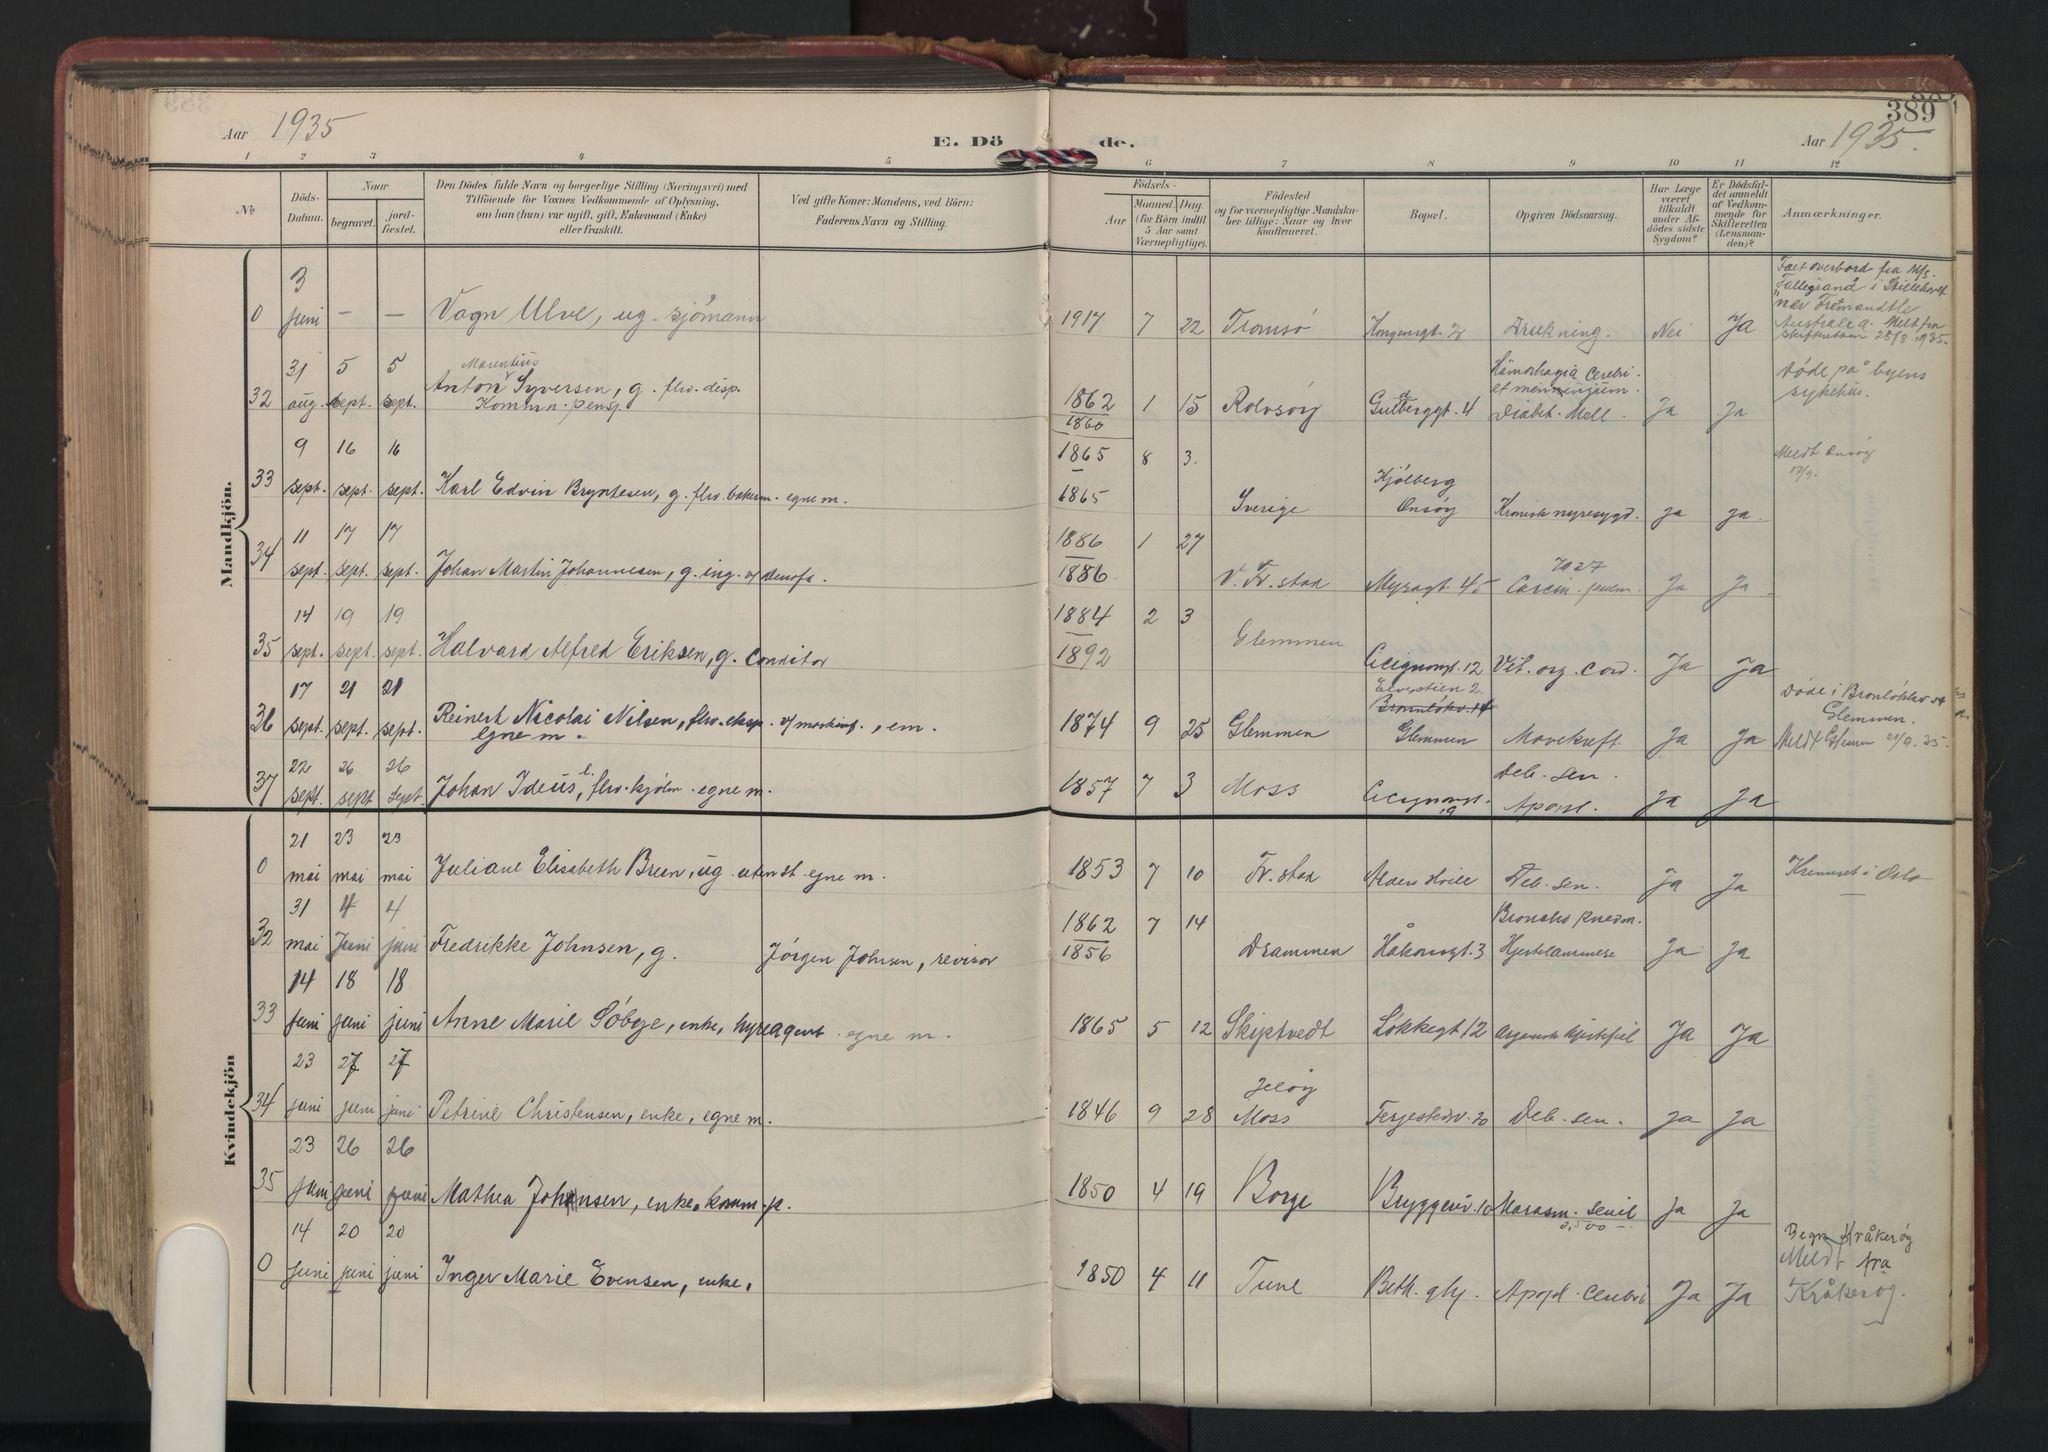 389
Aar 1935
E. Dö de.
Aar 1935.
1 2 3 4 5 6 7 8 9 10 11 12
No
Döds-Datum.
Naar
begravet.
jord-fæstet.
Den Dödes fulde Navn og borgerlige Stilling (Næringsvei) med
Tilföiende for Voxnes Vedkommende af Oplysning,
om han (hun) var ugift, gift, Enkemand (Enke)
eller fraskilt.
Ved gifte Koner: Mandens, ved Börn:
Faderens Navn og Stilling.
Födsels-
Aar
Maaned. Dag.
(for Börn indtil
5 Aar samt
Værnepligtige).
Födested
og for værnepligtige Mandska-
ber tillige: Naar og hvor
konfirmeret.
Bopæl.
Opgiven Dödsaarsag.
Har Læge
været
tilkaldt
under Af-
dödes sidste
Sygdom?
Er Dödsfal-
det anmeldt
af Vedkom-
mende for
Skifteretten
(Lensman-
den)?
Anmærkninger.
Mandkjön.
0 3 juni — — Vagn Ulve, ug. sjømann 1917 7 22 Tromsö Kongensgt. Drukning. Nei Ja
Falt overbord fra M/S.
i Stillehavet
nær Fremandtle
Australia. Melt fra
skifteretten 28/8 1935.
32 31 aug. 5 sept. 5 sept. Anton Marentius Syversen, g. flrv. disp.
Komun-pensj. 1862 1860 1 15 Rolvsøy Gulbergt. 4 Hämorhagia Cerebri
et meningium.
Diabet. Mell. Ja Ja
Döde på byens
sykehus.
33 9 sept. 16 sept. 16 sept. Karl Edvin Bryntesen, g. flrv. bakerm. egne m. 1865 1865 8 3. Sverige Kjölberg
Onsöy Kronisk nyresygd. Ja Ja.
Meldt Onsöy
12/9.
34 11 sept. 17 sept. 17 sept. Johan Martin Johannesen, g. ing. v/ Denofa. 1886 1886 1 27 V. Fr. stad Myragt. 45 Carcin. pulm. Ja Ja
35 14 sept. 19 sept. 19 sept. Halvard Alfred Eriksen, g. Conditor 1884 1892 2 3 Glemmen Cicignongt. 12 Vit. org. cord. Ja Ja
36 17 sept. 21 sept. 21 sept. Reinert Nicolai Nilsen, flrv. eksp. v/ , em.
egne m. 1874 9 25 Glemmen Elvestien 2.
Glemmen Mavekreft. Ja Ja
Döde i
Glemmen.
Meldt Glemm 21/9.35.
37 22 sept. 26 sept 26 sept. Johan Ideus, flrv. kjölm. egne m. 1857 7 3 Moss Cicignongt.
19 Deb. sen.
Apopl. Ja Ja
Kvindekjön
0 21 mai 23 mai 23 mai Juliane Elisabeth Breen, ug. utenst. egne m. 1853 7 10 Fr. stad Alders Hvile Deb. sen. Ja Ja Kremeret i Oslo
32 31 mai 4 Juni 4 juni Fredrikke Johnsen, g. Jörgen Johnsen, revisor 1862 1856 7 14 Drammen Håkonsgt. 3 Broncho pneum.
Hjertelammese Ja Ja
33 14 juni 18 juni 18 juni Anne Marie Söbye, enke, hyreagent. egne m. 1865 5 12 Skiptvedt Lökkegt 12 Organisk hjertefeil Ja Ja
34 23 juni 27 juni 27 juni Petrine Christensen, enke, egne m. 1846 9 28 Jelöy
Moss Terjestedsv. 20 Deb. sen. Ja Ja
35 23 juni 26 juni 26 juni Mathea Johansen, enke, komm. p. 1850 4 19 Borge Bryggeriv. 10 Marasm. Senil Ja Ja
0 14 juni 20 juni 20 juni Inger Marie Evensen, enke, 1850 4 11 Tune Beth. glhj. Apopl. Cerebri Ja Ja
Begr. Kråkeröy
Meldt fra
Kråkeröy.